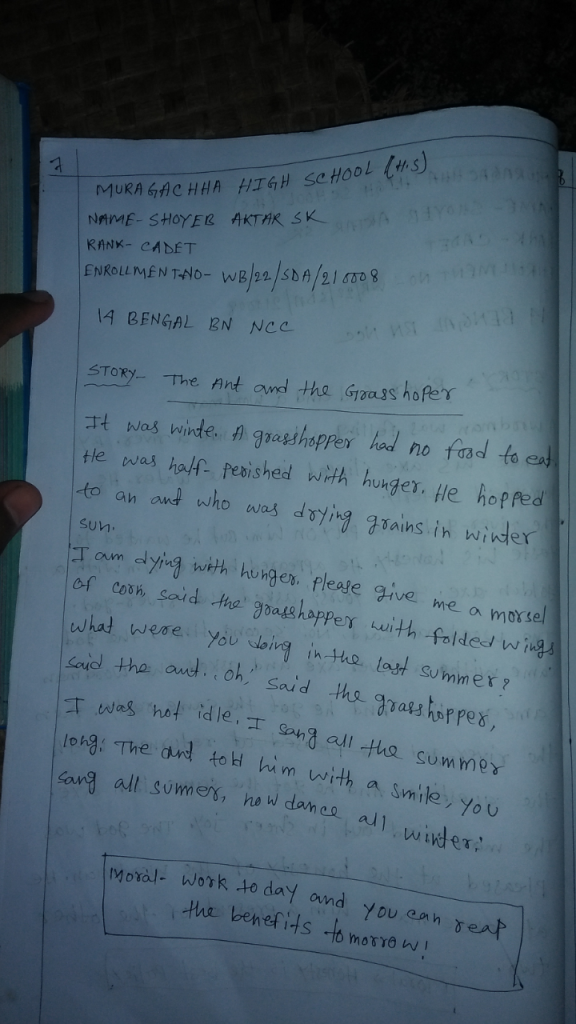 7
MURAGACHHA HIGH SCHOOL (H.S)
NAME- SHOYEB AKTAR SK
RANK- CADET
ENROLLMENT NO- WB/22/SDA/210008
14 BENGAL BN NCC
STORY- The Ant and the Grasshoper
It was winte. A grasshopper had no food to eat.
He was half-perished with hunger. He hopped
to an ant who was drying grains in winter
sun.
I am dying with hunger. please give me a morsel
of corn, said the grasshopper with folded wings
what were you doing in the last summer?
said the ant... oh, said the grasshopper,
I was not idle. I sang all the summer
long. The ant told him with a smile, you
sang all summer, now dance all winter.
Moral- work today and you can reap
the benefits tomorrow!
8